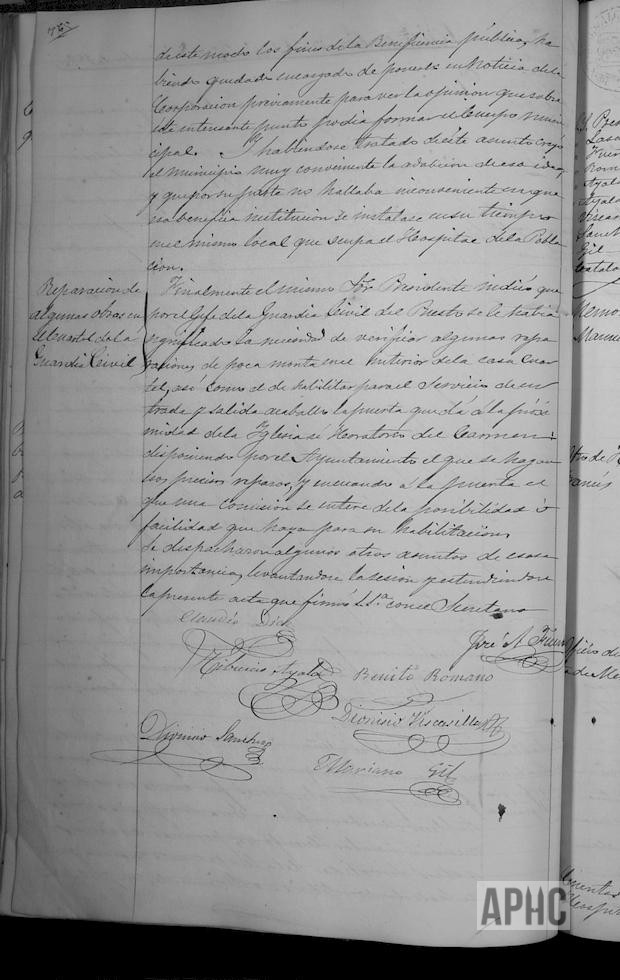 de este modo los fines de la Beneficencia pública, ha
biendo quedado encargado de ponerlo en noticia de la
Corporacion previamente para ver la opinion que sobre
este interesante punto podia formar el Cuerpo muni
cipal. Y habiendose tratado de este asunto creyó
el municipio muy conveniente la adopcion de esa idea,
y que por su parte no hallaba inconveniente en que
una benéfica institucion se instalase en su tiempo
en el mismo local que ocupa el Hospital de la Pobla
cion.
Reparacion de
algunas obras en
el cuartel de la
Guardia Civil
Finalmente el mismo Sor. Presidente indicó que
por el Gefe de la Guardia Civil del Puesto se le habia
significado la necesidad de verificar algunas repa
raciones de poca monta en el interior de la casa cuar
tel, asi como el de habilitar para el servicio de en
trada y salida de caballos la puerta que dá á la próxi
midad de la Iglesia ú Horatorio del Carmen:
disponiendo por el Ayuntamiento el que se hagan
los precisos reparos, y en cuando á la puerta el
que una comision se entere de la posibilidad ó
facilidad que haya para su habilitacion.
Se despacharon algunos otros asuntos de escasa
importancia, levantandose la sesion y estendiendose
la presente acta que firmó S.Sa. con el Secretario
Claudio
José A.
Tiburcio Ayala
Benito Romano
Dionisio Viscasillas
Dionisio Sanchez
Mariano Gil
APHC